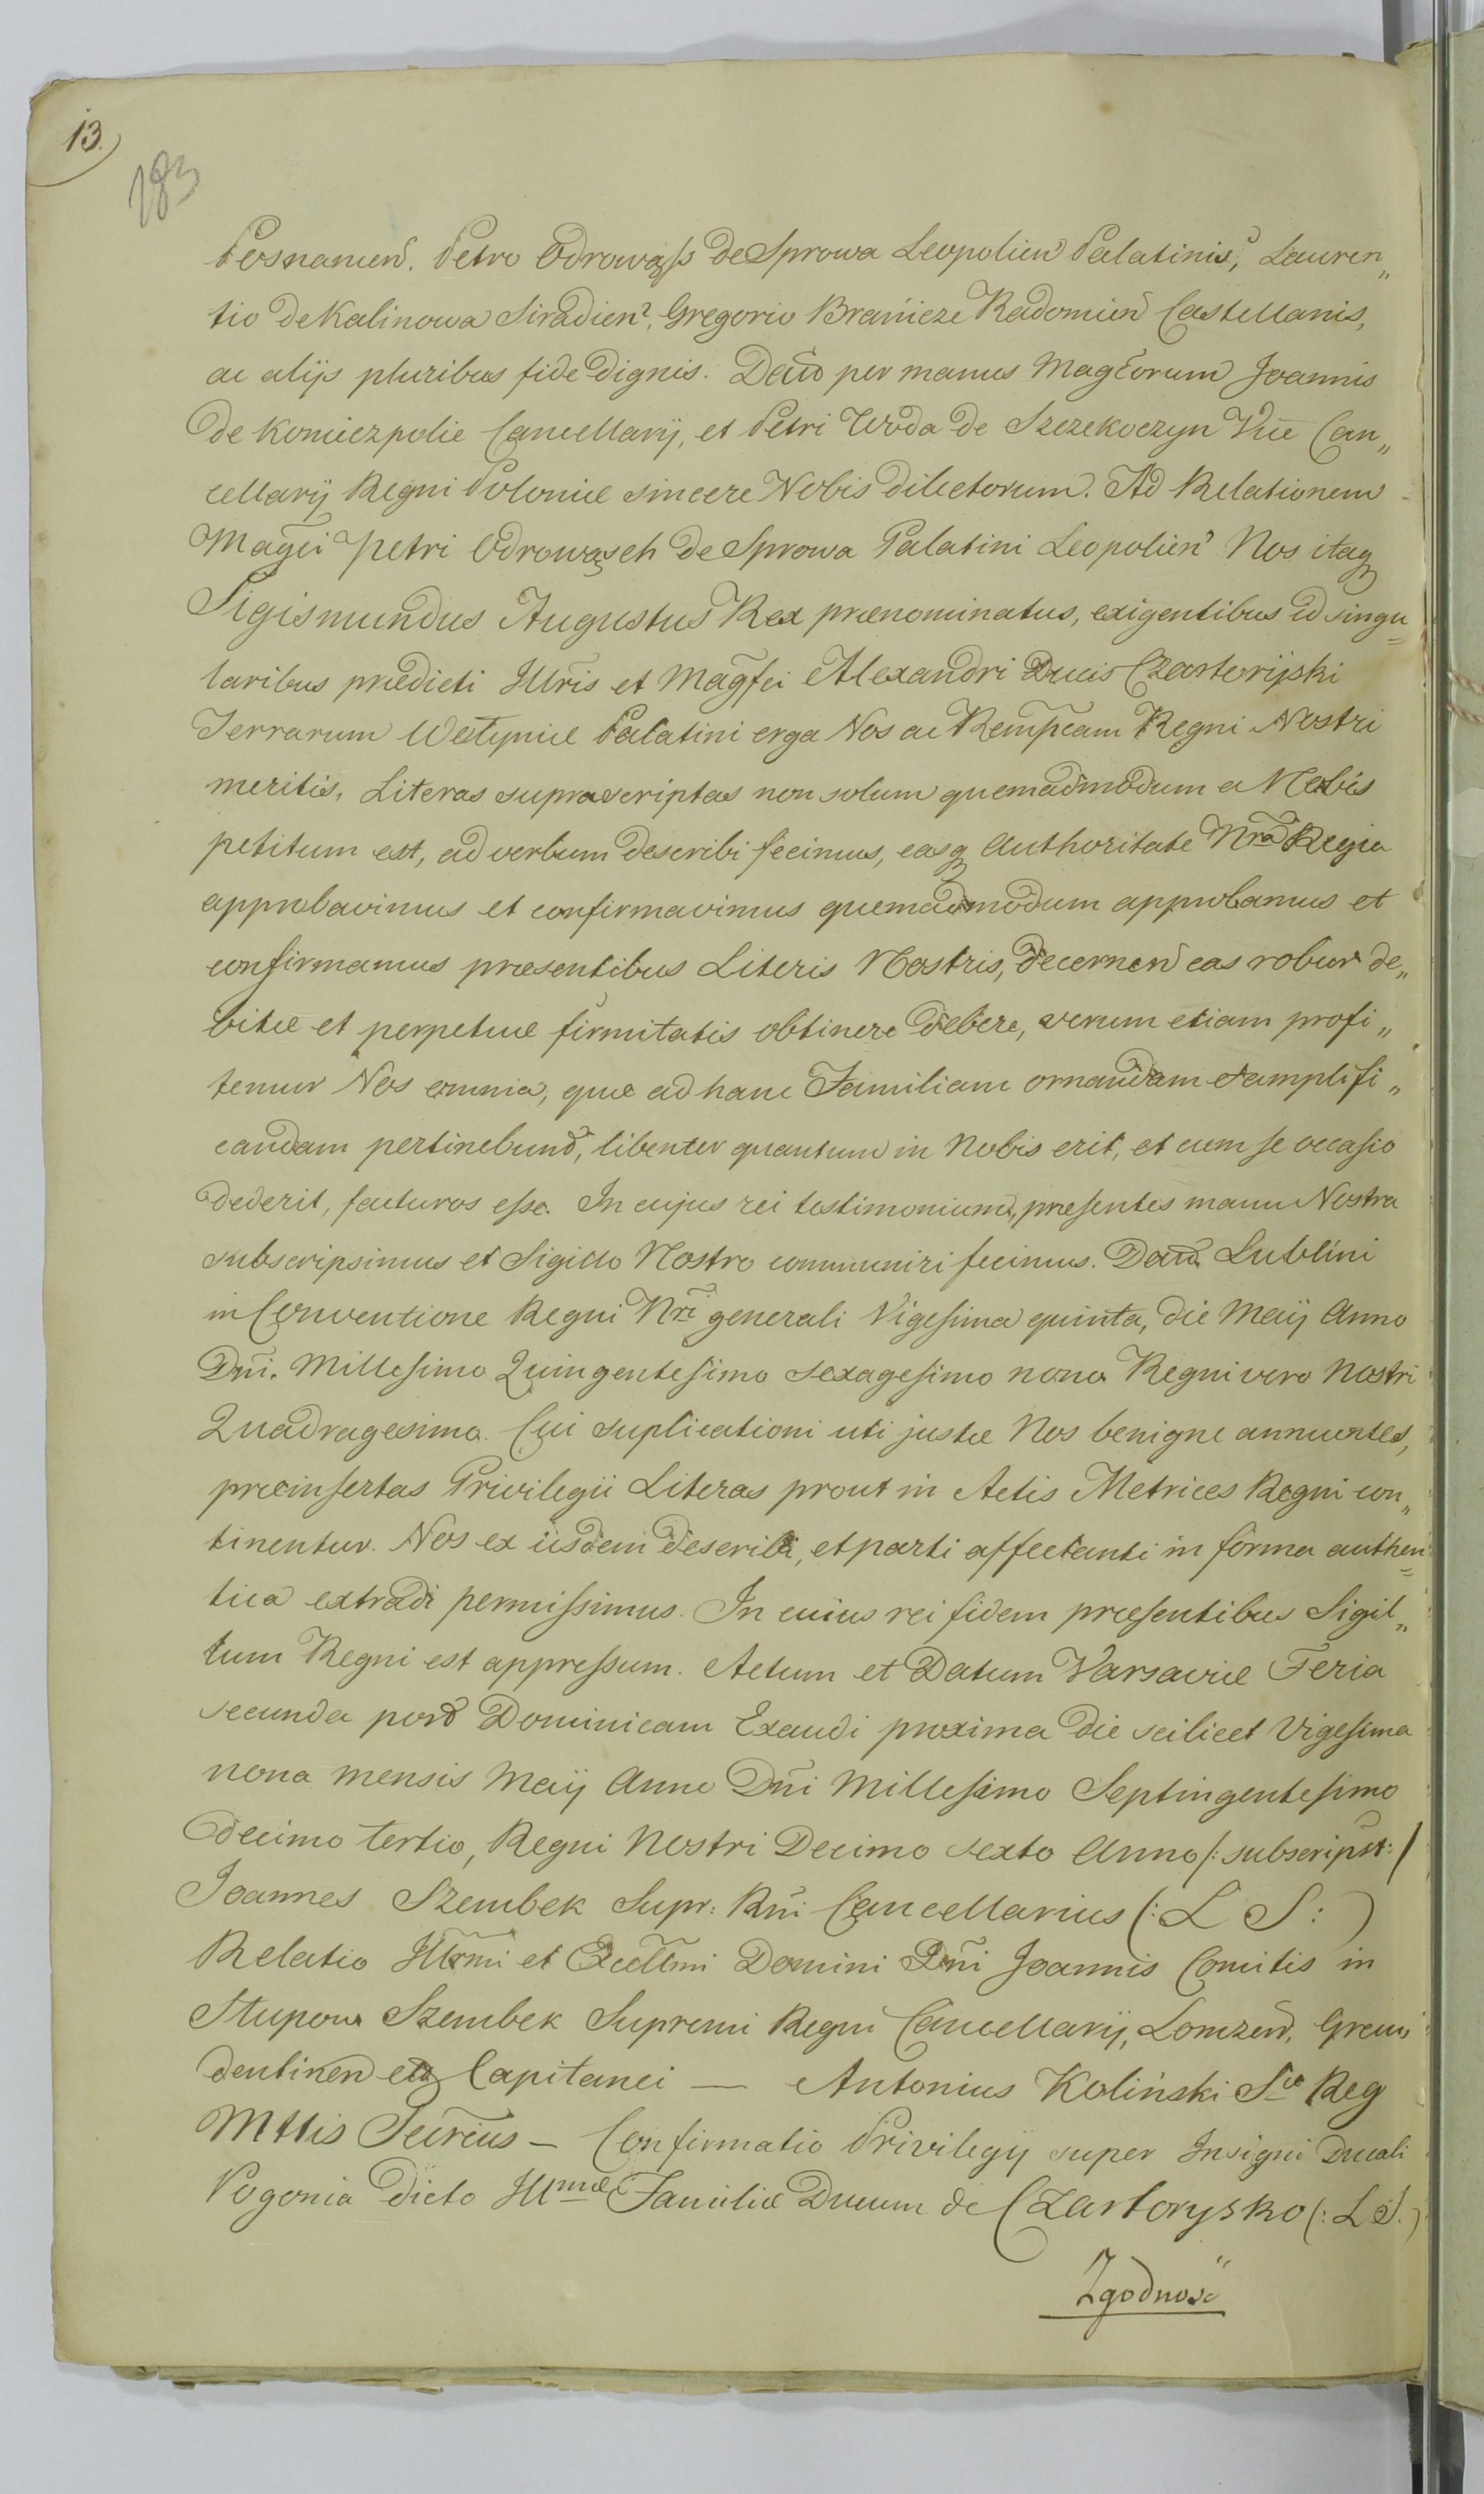 13.
183
Posnanien. Petro Odrowąss de Sprowa Leopolien Palatinis, Lauren„
tio de Kalinowa Siradien, Gregorio Branicze Radomien Castellanis,
ac alijs pluribus fide dignis. Datt per manus Magcorum Joannis
de Konieczpolie Cancellarij, et Petri Woda de Szczekoczyn Vice Can„
cellarij Regni Poloniæ sincere Nobis dilectorum. Ad Relationem
Magci Petri Odrowąsch de Sprowa Palatini Leopolien Nos itaq
Sigismundus Augustus Rex prænominatus, exigentibus id singu=
laribus prædicti Illris et Magfci Alexandri Ducis Czartoryski
Terrarum Wolyniæ Palatini erga Nos ac Rempcam Regni Nostri
meritis, Literas suprascriptas non solum quemadmodum a Nobis
petitum est, ad verbum describi fecimus, easq Authoritate Nra Regia
approbavimus et confirmavimus quemadmodum approbamus et
confirmamus præsentibus Literis Nostris, decernen eas robur de„
bitæ et perpetuæ firmitatis obtinere debere, verum etiam profi„
temur Nos omnia, quæ ad hanc Familiam ornandam et amplifi„
candam pertinebunt, libenter quantum in Nobis erit, et cum se occasio
dederit, facturos esse. In cujus rei testimonium, præsentes manu Nostra
subscripsimus et Sigillo Nostro communiri fecimus. Datt Lublini
in Conventione Regni Nri generali Vigesima quinta, die Maij Anno
Dni. Millesimo Quingentesimo sexagesimo nono Regni vero Nostri
Quadragesimo. Cui suplicationi uti justæ Nos benigne annuentes,
præinsertas Privilegii Literas prout in Actis Metrices Regni con„
tinentur. Nos ex iisdem describi, et parti affectanti in forma authen=
tica extradi permissimus. In cuius rei fidem præsentibus Sigil„
lum Regni est appressum. Actum et Datum Varsaviæ Feria
secunda post Dominicam Exaudi proxima die scilicet Vigesima
nona mensis Maij Anno Dni Millesimo Septingentesimo
decimo tertio, Regni Nostri Decimo sexto Anno /: subscripst: /
Joannes Szembek Supr: Rni Cancellarius (: L S: )
Relatio Illrmi et Excellmi Domini Dni Joannis Comitis in
Stupow Szembek Supremi Regni Cancellarij, Lomzen, Grau„
dentinen etc Capitanei — Antonius Koliński Sæ Reg
Mttis Secrius — Confirmatio Privilegij super Insigni Ducali
Pogonia dicto Illmæ Familiæ Ducum de Czartorysko (: L S.)
Zgodność